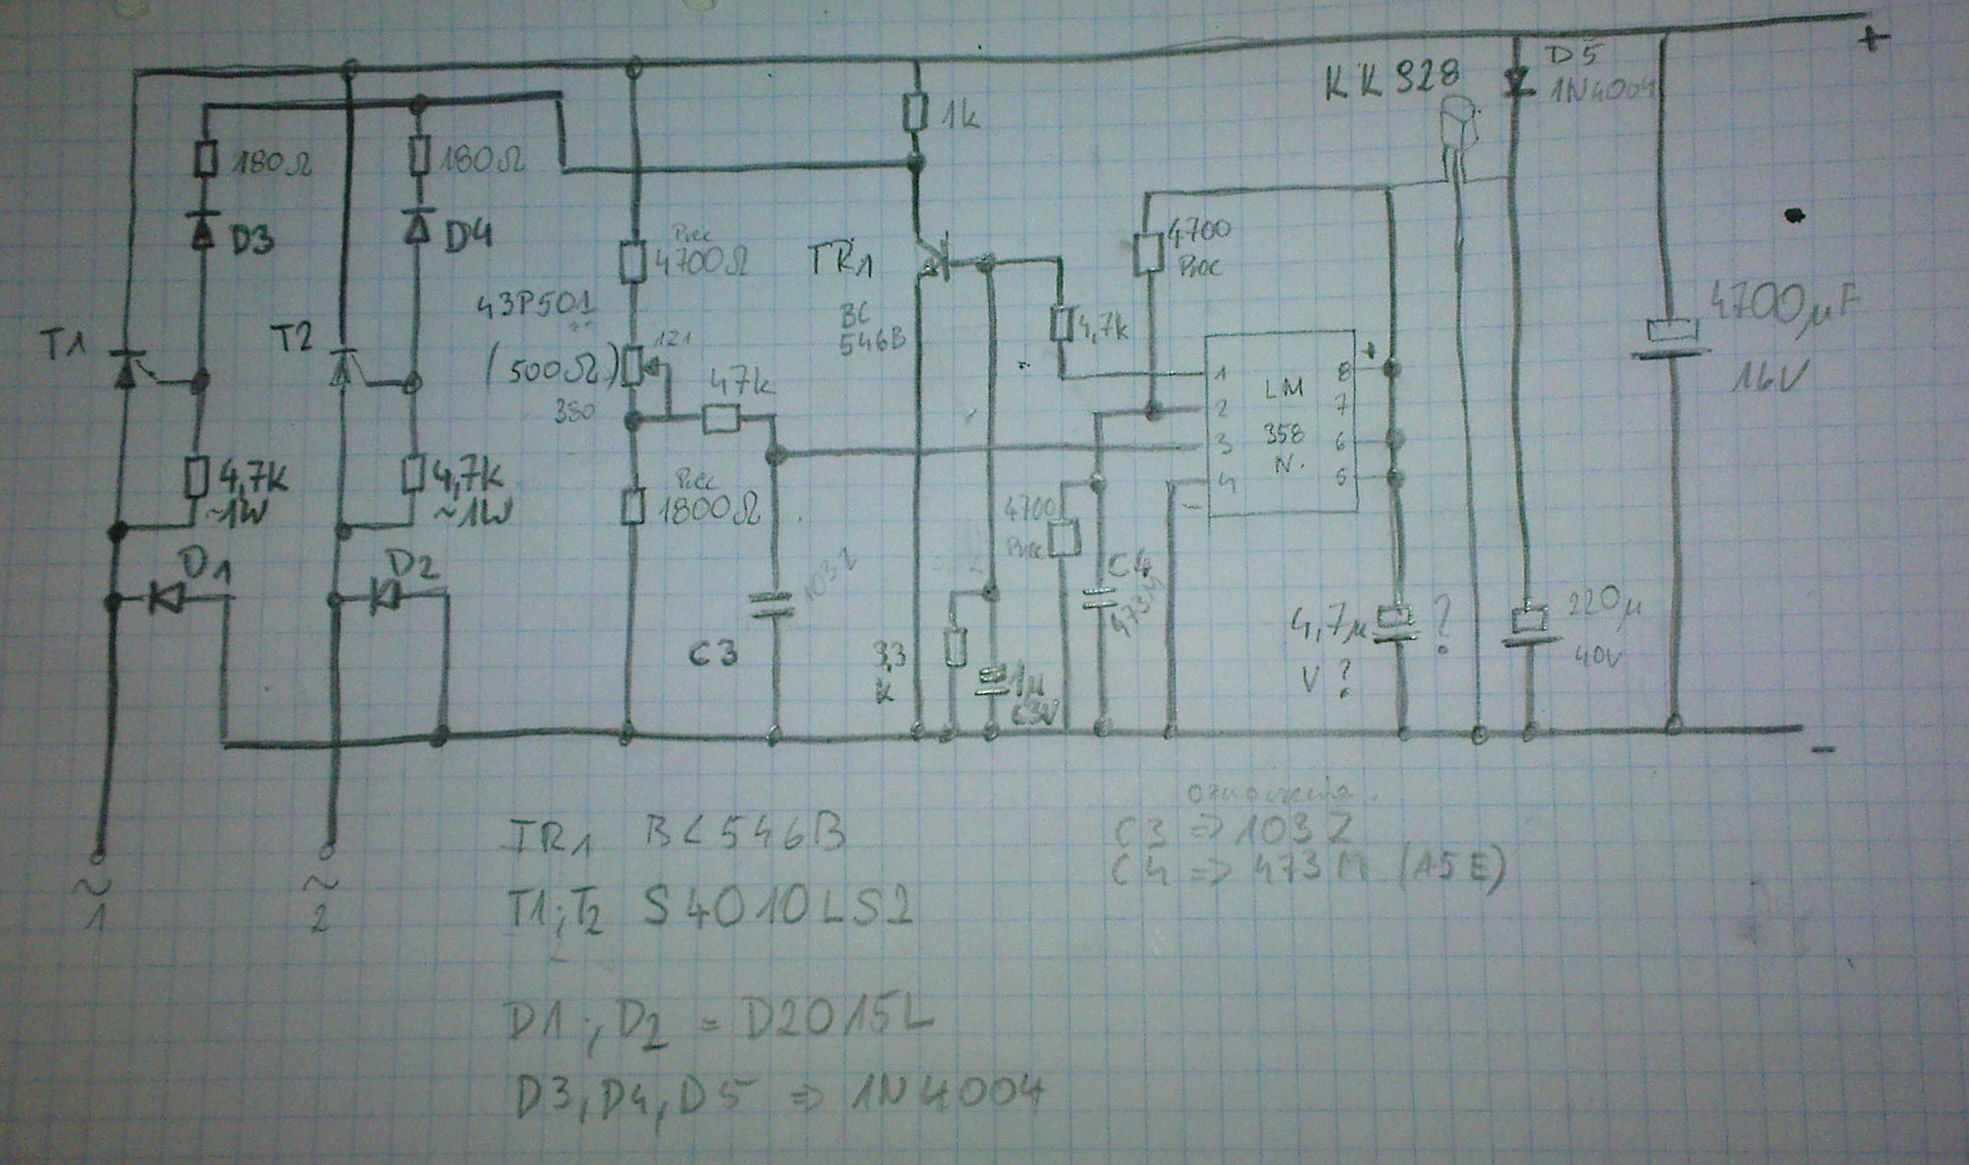 +
D5
1N4004
KK928
1k
180Ω
180Ω
D3
D4
Prec
4700Ω
TR1
BC
546B
4700
Prec
43P501
121
(500Ω)
380
T1
T2
47k
4,7k
1
2
3
4
LM
358
N.
8
7
6
5
+
-
4700µF
16V
4,7k
~1W
4,7k
~1W
Prec
1800Ω
D1
D2
103Z
C3
3,3
k
1µ
63V
4700
Prec
C4
473M
4,7µ
V?
?
220µ
40V
-
~
1
~
2
TR1 BC546B
T1;T2 S4010LS2
D1;D2 = D2015L
D3,D4,D5 => 1N4004
oznaczenia.
C3 => 103Z
C4 => 473M (A5E)